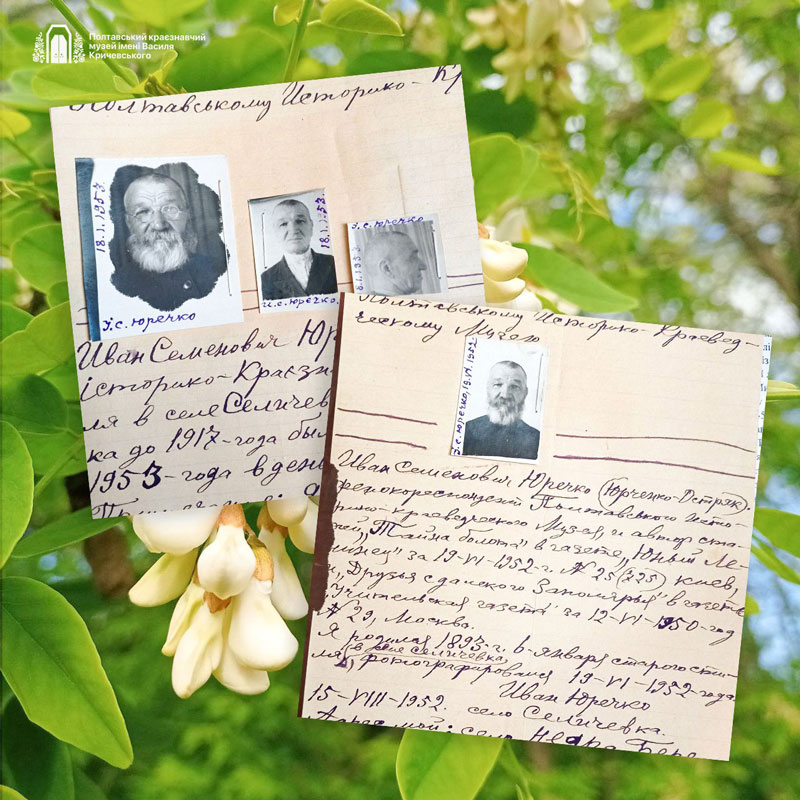 Полтавський краєзнавчий
музей імені Василя
Кричевського
Полтавському Историко-Кр
18.1.1953.
І.С.Юречко
18.1.53.
И.С.Юречко.
І.С.Юречко
18.1.1953
Иван Семенович Юр
історико-Краєзн
ля в селе Селичев
ка до 1917-года был
1953-года в день
Полтавському Историко-Краевед-
ческому Музею
І.С.Юречко, 19.VI.1952.
Иван Семенович Юречко (Юрченко-Остряк).
Фенокореспондент Полтавського исто-
рико-краеведческого Музея, и автор ста-
тей „Тайна болота" в газете „Юный Ле-
нинец" за 19-VI-1952-г. № 25 (225) Киев,
и „Друзья с далекого Заполярья" в газете
„Учительская газета" за 12-VI-1950-год
№ 29, Москва.
Я родился 1893-г. 6-января старого сти-
ля в селе Селичевка,
фотографировался 19-VI-1952-года
Иван Юречко
15-VIII-1952. село Селичевка.
Адрес мой: село Недра Бере